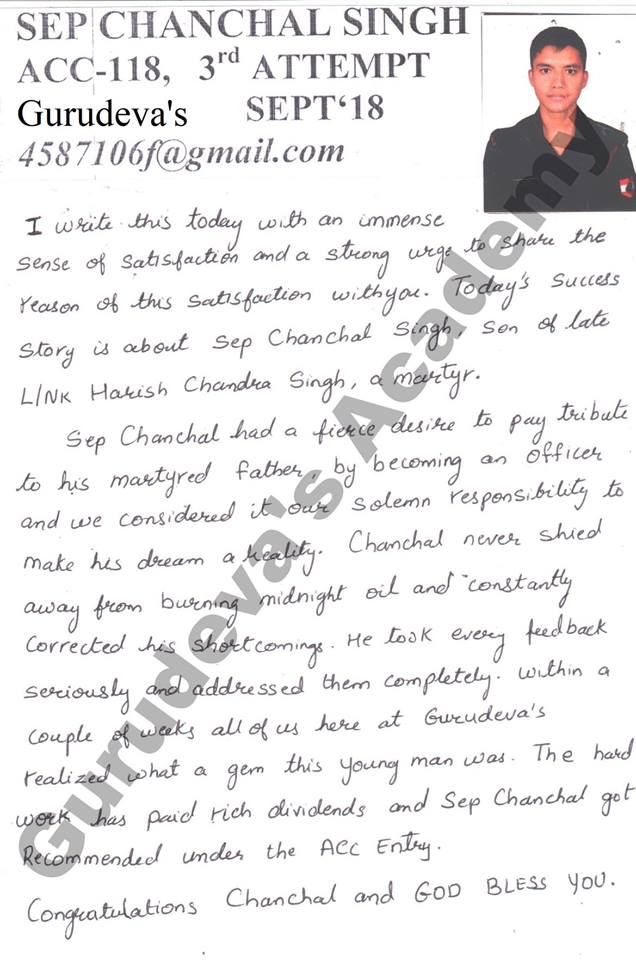 SEP CHANCHAL SINGH
ACC-118, 3rd ATTEMPT
Gurudeva's SEPT‘18
4587106f@gmail.com
I write this today with an immense
sense of satisfaction and a strong urge to share the
reason of this satisfaction with you. Today's success
story is about Sep Chanchal Singh, son of late
L/NK Harish Chandra Singh, a martyr.
Sep Chanchal had a fierce desire to pay tribute
to his martyred father, by becoming an officer
and we considered it our solemn responsibility to
make his dream a reality. Chanchal never shied
away from burning midnight oil and constantly
corrected his shortcomings. He took every feedback
seriously and addressed them completely. Within a
couple of weeks all of us here at Gurudeva's
realized what a gem this young man was. The hard
work has paid rich dividends and Sep Chanchal got
Recommended under the ACC Entry.
Congratulations Chanchal and GOD BLESS YOU.
Gurudeva's Academy